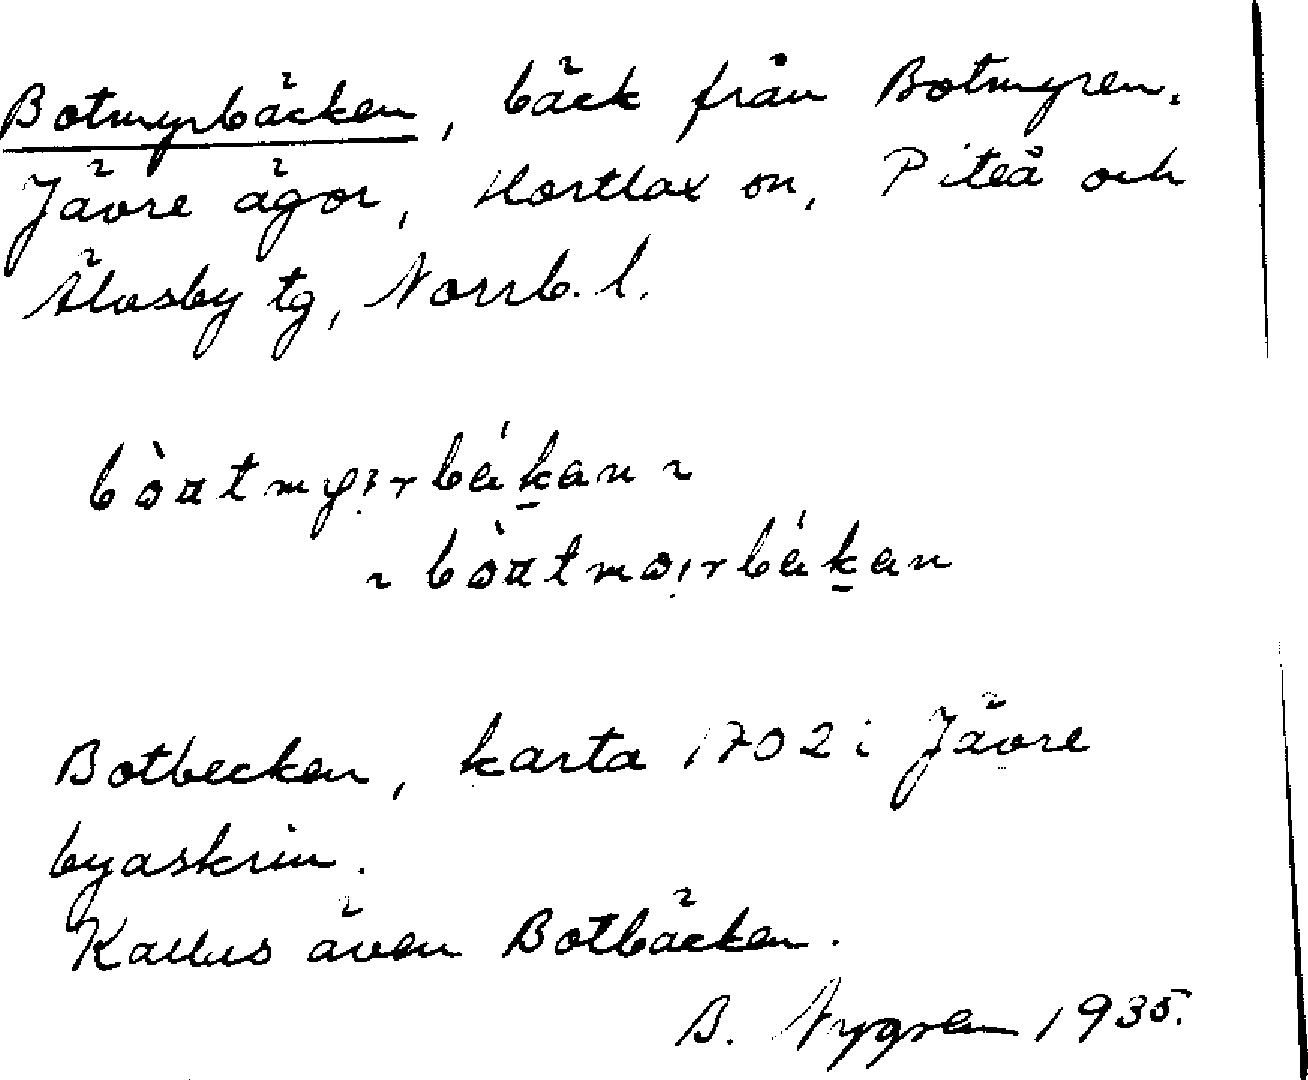 Botmyrbäcken, bäck från Botmyren.
Jävre ägor, Hortlax sn, Piteå och
Älvsby tg, Norrb. l.
Botbecken, karta 1702 i Jävre
byaskrin.
Kallas även Botbäcken.
B. Nygren 1935.